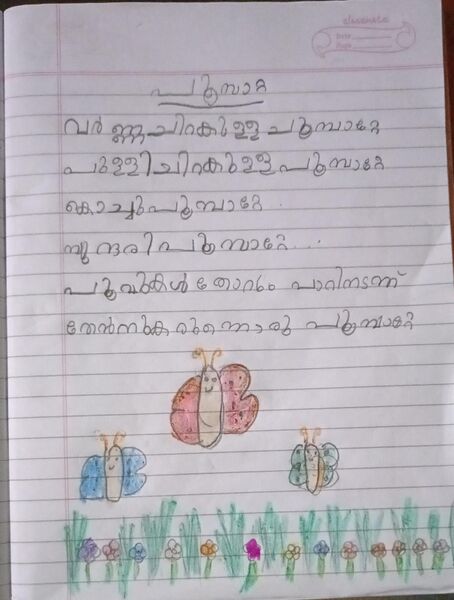 classmate
Date
Page
പൂമ്പാറ്റ
വർണ്ണചിറകുള്ള പൂമ്പാറ്റേ
പുള്ളിചിറകുള്ള പൂമ്പാറ്റേ
കൊച്ചുപൂമ്പാറ്റേ.
സുന്ദരി പൂമ്പാറ്റേ....
പൂവുകൾ തോറും പാറിനടന്ന്
തേൻനുകരുന്നൊരു പൂമ്പാറ്റേ